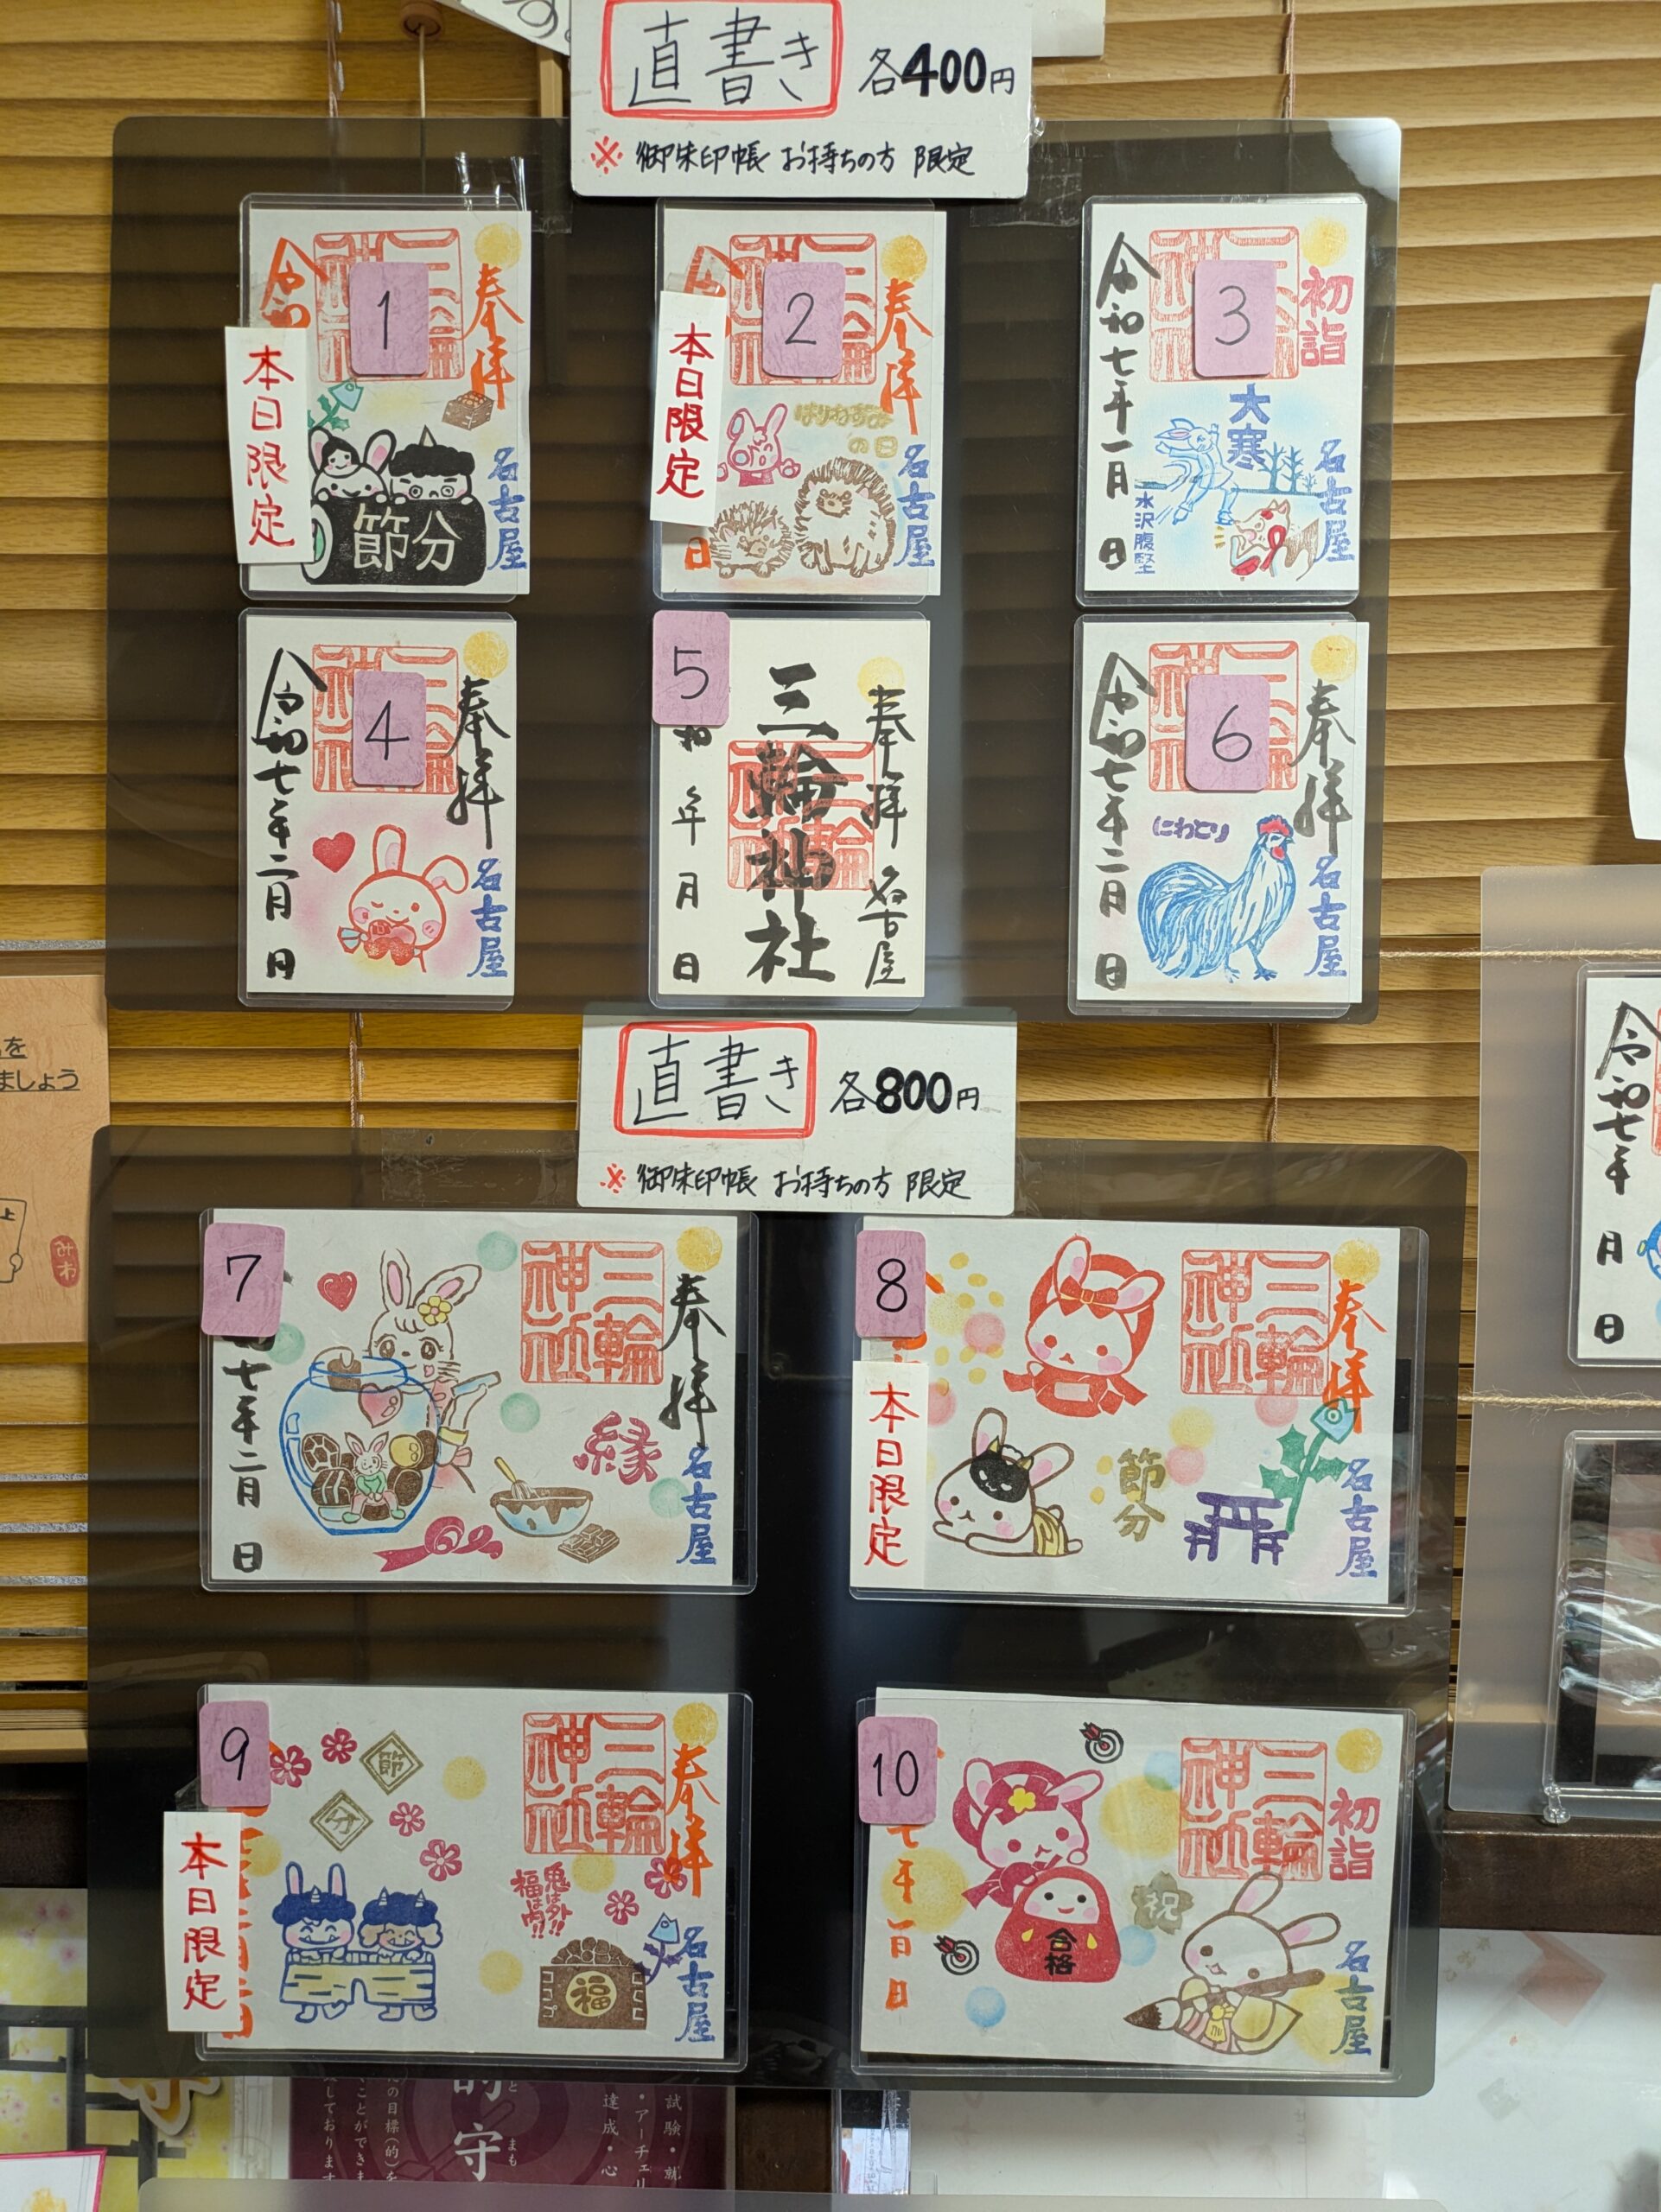 直書き 各400円
※ 御朱印帳 お持ちの方 限定
1
奉拝
名古屋
節分
令和
本日限定
2
奉拝
名古屋
はりねずみ
の日
本日限定
日
3
初詣
名古屋
大寒
水沢腹堅
令和七年一月 日
4
奉拝
名古屋
令和七年二月 日
5
奉拝 名古屋
三輪神社
和 年 月 日
6
奉拝
名古屋
にわとり
令和七年二月 日
直書き 各800円
※ 御朱印帳 お持ちの方 限定
7
奉拝
名古屋
三輪神社
縁
七年二月 日
8
奉拝
名古屋
三輪神社
節分
本日限定
9
奉拝
名古屋
三輪神社
鬼は外!!
福は内!!
福
節
分
本日限定
10
初詣
名古屋
三輪神社
祝
合格
七年一月 日
令和七年 月 日
を
ましょう
上
みわ
的守
まと
まも
試験・就
・アーチェリ
達成・心
の目標(的)を
ことができま
しております